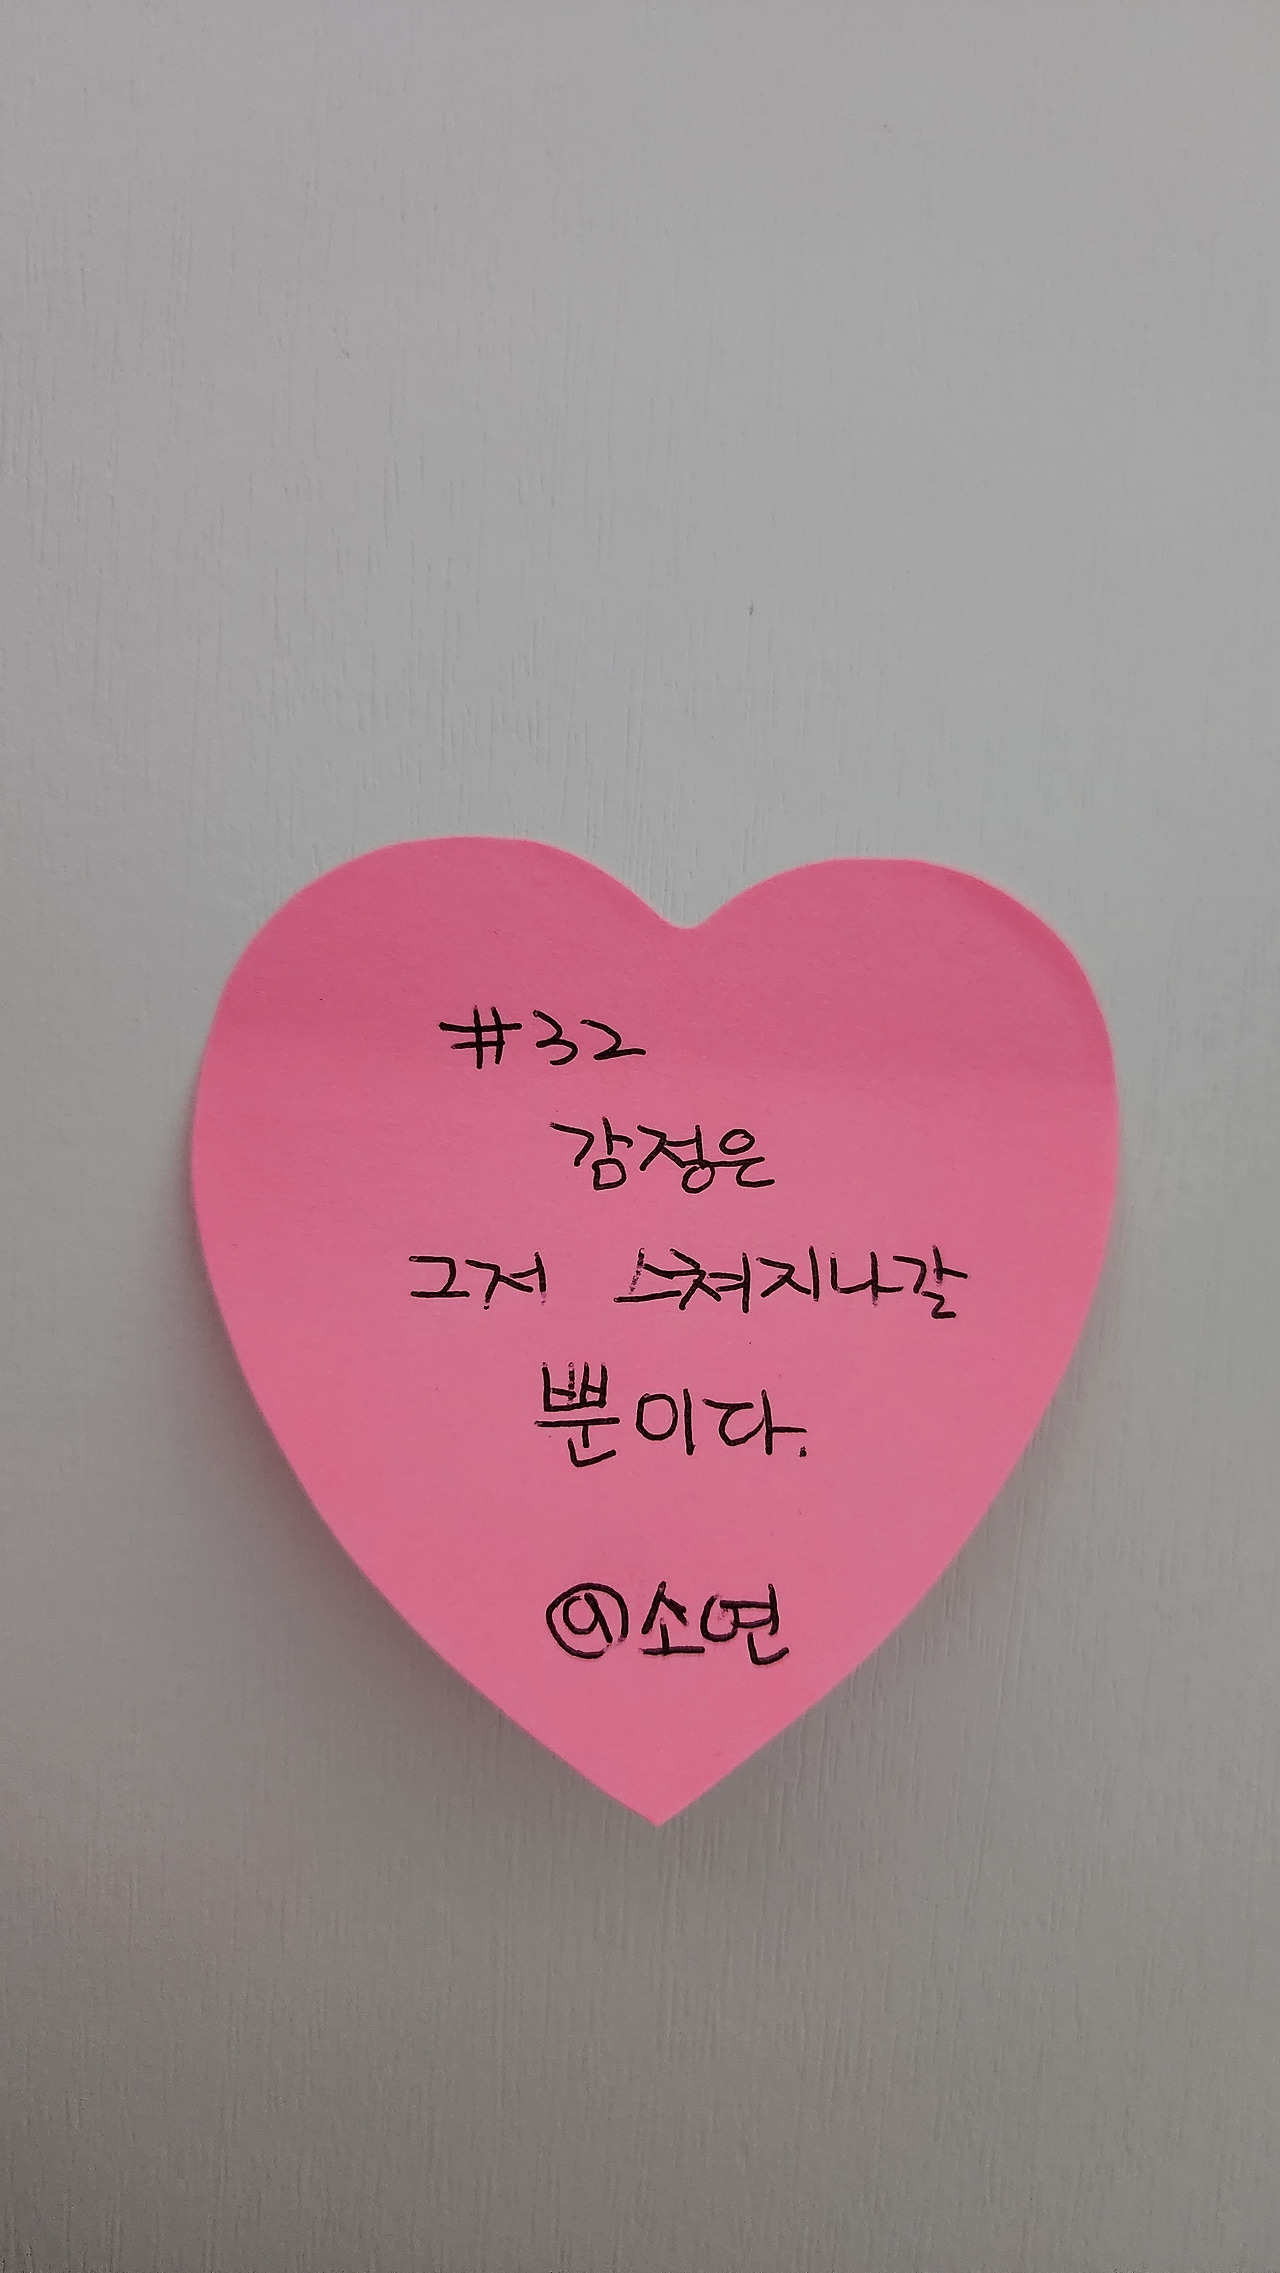 #32
감정은
그저 스쳐지나갈
뿐이다.
@소연